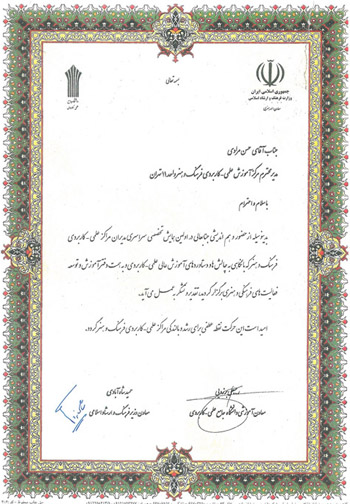 بسمه تعالی
جمهوری اسلامی ایران
وزارت فرهنگ و ارشاد اسلامی
جناب آقای حسن مرادی
مدیر محترم مرکز آموزش علمی - کاربردی فرهنگ و هنر واحد ۱۱ تهران
با سلام و احترام
بدینوسیله از حضور و هم اندیشی جنابعالی در اولین همایش تخصصی سراسری مدیران مراکز علمی - کاربردی
فرهنگ و هنر که با نگاهی به چالش ها و دستاوردهای آموزش عالی علمی - کاربردی و به همت دفتر آموزش و توسعه
فعالیت های فرهنگی و هنری برگزار گردید، تقدیر و تشکر به عمل می آید.
امید است این حرکت نقطه عطفی برای رشد و بالندگی مراکز علمی - کاربردی فرهنگ و هنر گردد.
معاون آموزشی دانشگاه جامع علمی - کاربردی
حمید شاه آبادی
معاون وزیر فرهنگ و ارشاد اسلامی